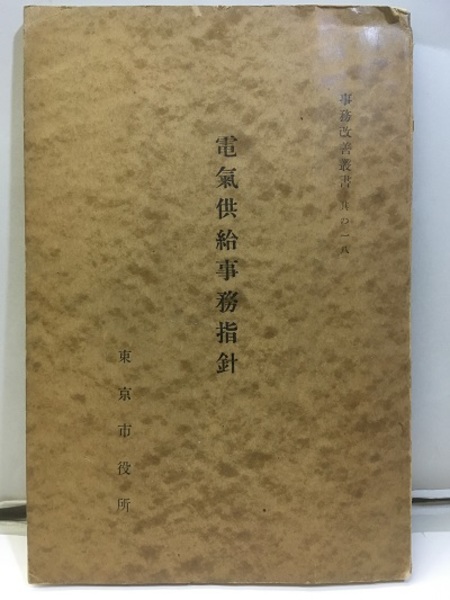 事務改善叢書 其の一八
電氣供給事務指針
東京市役所